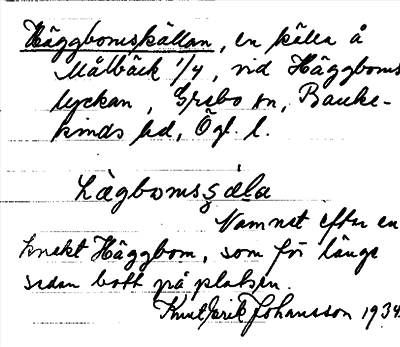 Häggbomskällan, en källa å
Målbäck 1/4, vid Häggboms
lyckan, Grebo sn, Banke-
kinds hd, Ögl. l.
hàgbomsçála
Namnet efter en
knekt Häggbom, som för länge
sedan bott på platsen.
Knut Erik Johansson 1934.